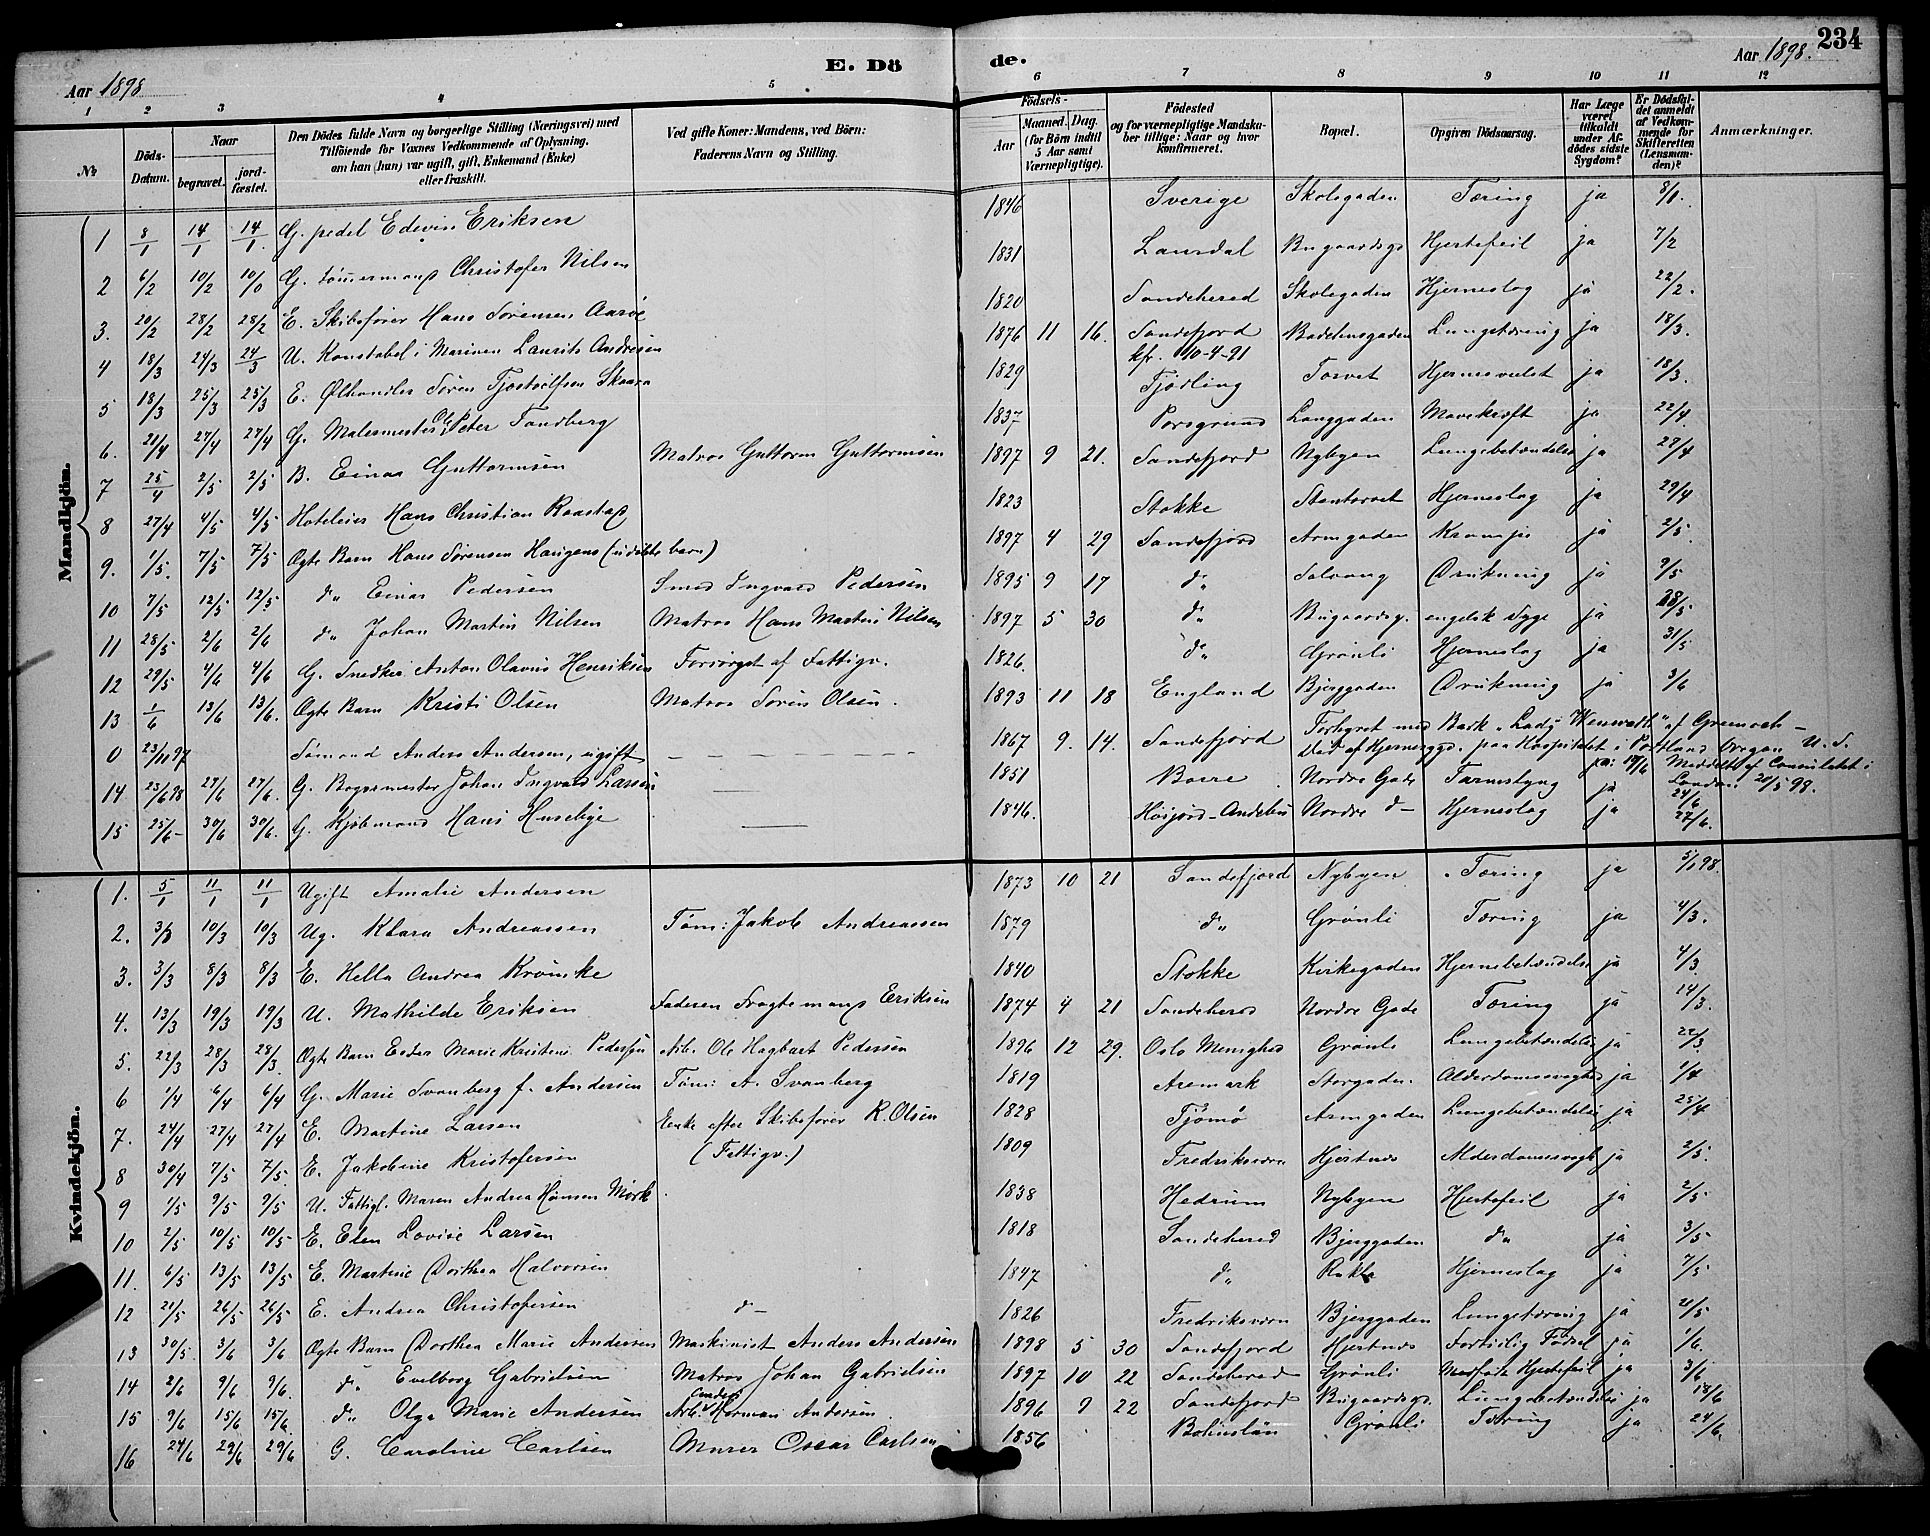 234
E. Döde.
Aar 1898
Aar 1898.
1 2 3 4 5 6 7 8 9 10 11 12
No
Döds-Datum.
Naar
begravet.
jord-fæstet.
Den Dödes fulde Navn og borgerlige Stilling (Næringsvei) med Tilföiende for Voxnes Vedkommende af Oplysning, om han (hun) var ugift, gift, Enkemand (Enke) eller fraskilt.
Ved gifte Koner: Mandens, ved Börn: Faderens Navn og Stilling.
Födsels-
Aar
Maaned. Dag.
(for Börn indtil 5 Aar samt Værnepligtige).
Födested og for værnepligtige Mandskaber tillige: Naar og hvor Konfirmeret.
Bopæl.
Opgiven Dödsaarsag.
Har Læge været tilkaldt under Afdödes sidste Sygdom?
Er Dödsfaldet anmeldt af Vedkommende for Skifteretten (Lensmanden)?
Anmærkninger.
Mandkjön.
1 8/1 14/1 14/1 G. pedel Edevin Eriksen 1846 Sverige Skolegaden Tæring ja 8/1.
2 6/2 10/2 10/0 G. tömermand Christofer Nilsen 1831 Laurdal Bugaardsgd Hjertefeil ja 7/2
3. 20/2 28/2 28/2 E. Skibsfører Hans Sørensen Aarøe 1820 Sandeherred Skolegaden Hjerneslag ja 22/2.
4 18/3 24/3 24/3 U. Konstabel i Marinen Laurits Andresen 1876 11 16. Sandefjord Badehusgaden Lungetæring ja 18/3.
kfr. 10-4-91
5 18/3 25/3 25/3 E. Ølhandler Søren Tjøstolfsen Skaara 1829 Tjødling Torvet ja 18/3.
6. 21/4 27/4 27/4 G. Malermester Ole Peter Tandberg 1837 Porsgrund Langgaden Mavekræft ja 22/4
7 25/4 2/5 2/5 B. Einar Guttormsen Matros Guttorm Guttormsen 1897 9 21. Sandefjord Nybyen Lungebetændelse ja 27/4
8 27/4 4/5 4/5 Hoteleier Hans Christian Raastad 1823 Stokke Hjerneslag ja 29/4
9. 1/5. 7/5 7/5 Ægte Barn Hans Sørensen Haugens (udøbt barn) 1897 4 29 Sandefjord Armgaden Krampe ja 2/5.
10 7/5 12/5 12/5 do Einar Pedersen Smed Ingvald Pedersen 1895 9 17 do Solvang Drukning ja 9/5
11 28/5 2/6 2/6 do Johan Martin Nilsen Matros Hans Martin Nilsen 1897 5 30 do Bugaardsg. engelsk Syge ja 28/5
12 29/5 4/6 4/6 G. Snedker Anton Olavus Henriksen Forsørget af Fattigv. 1826. do Grønli Hjerneslag ja 31/5
13 1/6 13/6 13/6. Ægte Barn Kristi Olsen Matros Søren Olsen. 1893 11 18 England Bjerggaden Drukning ja 3/6
0 23/11 97 Sømand Anders Andersen, ugift 1867 9. 14. Sandefjord Forhyret med Bark "Lady Wenvath" af Greenock –
Død af Hjernesygd. paa Hospitalet i Portland Oregon U. S.
Meddelt af Consulatet i London 21/5 98.
14 23/6 98 27/6 27/6. G. Bogermester Johan Ingvald Larsen 1851 Boere Nordre Gade Tarmeslyng ja 24/6
15 25/6- 30/6 30/6. G. Kjøbmand Hans Huseby 1846. Høijord-Andebu Nordre do Hjerneslag ja 27/6.
Kvindekjön.
1. 5/1 11/1 11/1 Ugift Amalie Andersen 1873 10 21 Sandefjord Nybyen Tæring ja 5/1 98.
2. 3/3 10/3 10/3 Ug. Klara Andreassen Tøm: Jakob Andreassen 1879 do Grønli Tæring ja 4/3.
3. 3/3 8/3 8/3 E. Hella Andrea Krömke 1840 Stokke Kirkegaden Hjernebetændelse ja 4/3
4. 13/3 19/3 19/3 U. Mathilde Eriksen Faderen Fragtemand Eriksen 1874 4 21 Sandeherred Nordre Gade Tæring ja 14/3.
5. 22/3 28/3 28/3. Ægte Barn Marie Kristine Pedersen Arb. Ole Hagbart Pedersen 1896 12 29. Oslo Menighed Grønli Lungebetændelse ja 22/3.
6 1/4 6/4 6/4 G. Marie Svanberg f. Andersen Tøm: A. Svanberg 1819 Aremark Storgaden. Alderdomssvaghed ja 1/4
7. 24/4 27/4 27/4 E. Martine Larsen Enke efter Skibsfører R. Olsen 1828 Tjømø Armgaden Lungebetændelse ja 25/4
8 30/4 7/5 7/5. E. Jakobine Kristofersen (Fattigv.) 1809 Fredriksværn Hjertnes Alderdomssvagh ja 2/5.
9 1/5 9/5 9/5 U. Fattigl. Maren Andrea Hansen Mørk 1838 Hedrum Nybyen Hjertefeil ja 2/5
10 2/5 10/5 10/5 E. Elen Lovise Larsen 1818 Sandeherred Bjerggaden do ja 3/5
11. 6/5 13/5 13/5 E. Martine Dorthea Halvorsen 1847 do Rukla Hjerneslag ja 7/5
12 21/5 26/5 26/5 E. Andrea Christofersen do 1826 Fredriksvärn Bjerggaden Lungetæring ja 21/5
13 30/5. 3/6 3/6 Ægte Barn Dorthea Marie Andersen Maskinist Anders Andersen 1898 5 30 Sandefjord Hjertnes Fortidlig Fødsel ja 1/6.
14 2/6 9/6 9/6. do Evelborg Gabrielsen Matros Johan Gabrielsen 1897 10 22 Sandeherred Grønli Medfødt Hjertefeil ja 3/6
15 9/6 15/6 15/6 do Olga Marie Andersen Arb. Anders Herman Andersen. 1896 9 22 Sandefjord Bugaardsgd. Lungebetændelse ja 18/6
16 24/6 29/6 29/6 G. Caroline Carlsen Murer Oscar Carlsen 1856 Bohuslän Grønli Tæring ja 24/6.